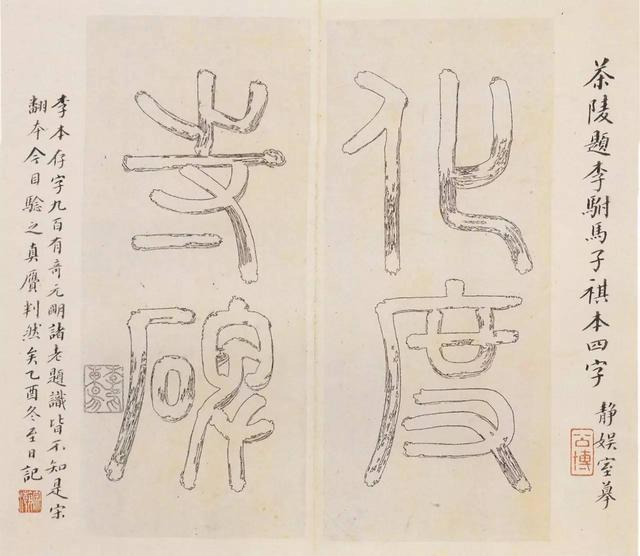 茶陵題李駙馬子祺本四字
靜娛室摹
公博
化度
寺碑
李本存字九百有奇元明諸老題識皆不知是宋
翻本今目驗之真贗判然矣乙酉冬至日記